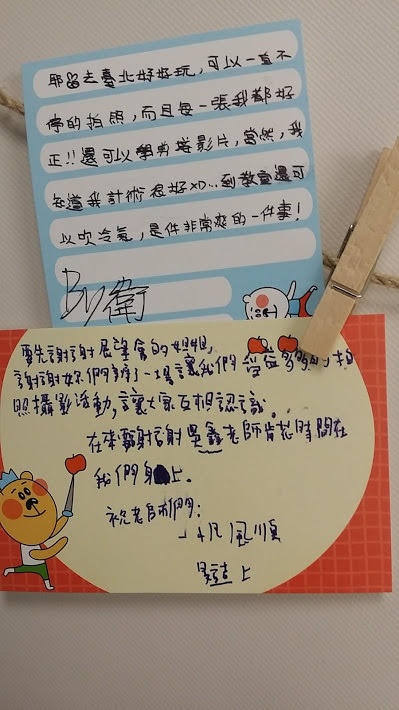 耶！去臺北好好玩，可以一直不
停的拍照，而且每一張我都好
正!!還可以學剪接影片，當然，我
知道我技術很好XD...到教室還可
以吹冷氣，是件非常爽的一件事！
By 衛
要先謝謝展望會的姐姐，
謝謝妳們辦了一場讓我們 多多的拍
照攝影活動，讓大家互相認識。
在來謝謝 老師肯花時間在
我們身上。
祝老師們：
一帆風順
上